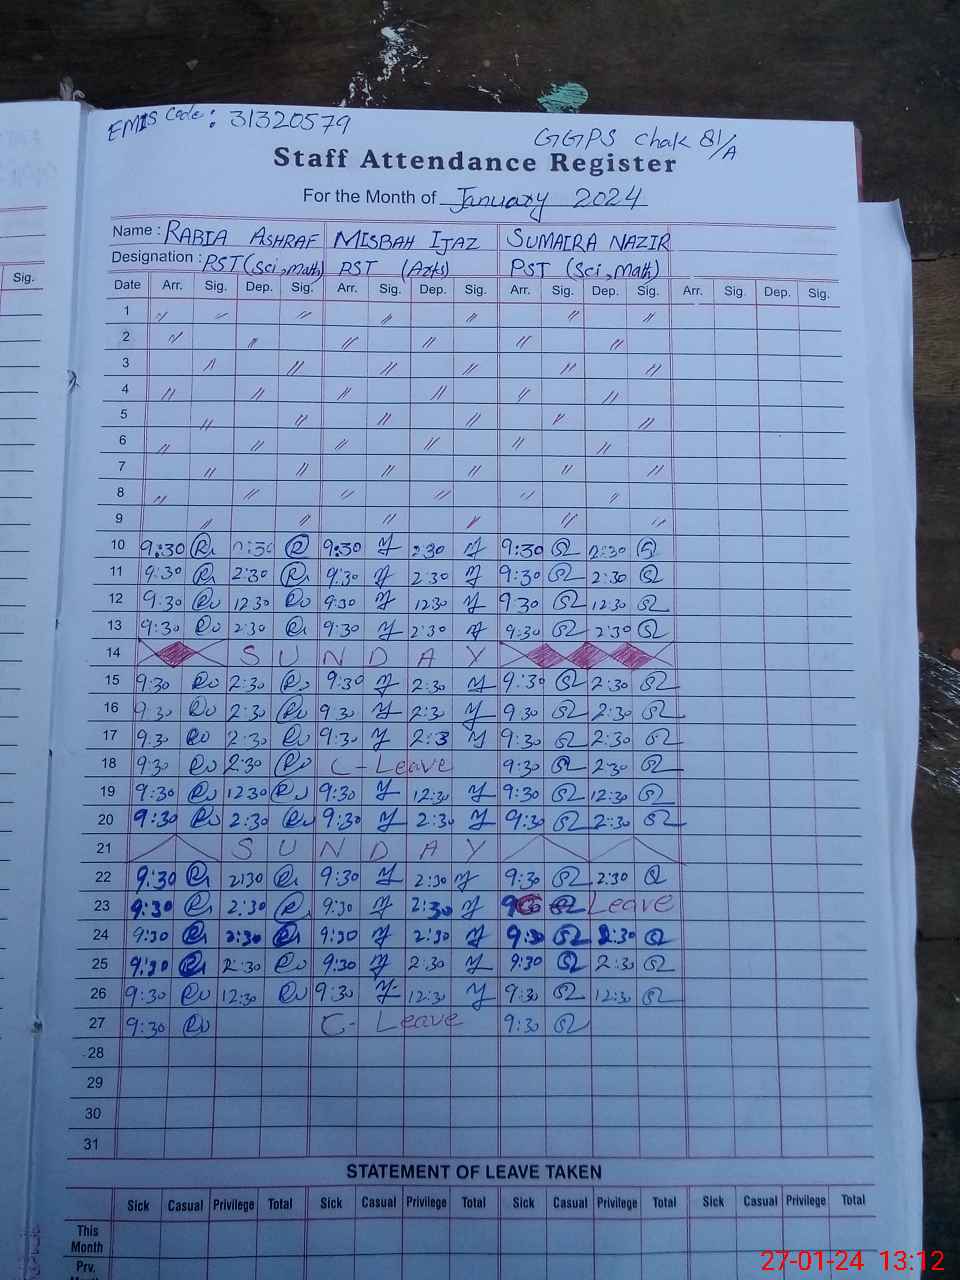 EMIS Code: 31320579
GGPS Chak 81/A
Staff Attendance Register
For the Month of January 2024
Name : RABIA ASHRAF MISBAH IJAZ SUMAIRA NAZIR
Designation : PST (Sci, Math) PST (Arts) PST (Sci, Math)
Sig.
Date Arr. Sig. Dep. Sig. Arr. Sig. Dep. Sig. Arr. Sig. Dep. Sig. Arr. Sig. Dep. Sig.
1 〃 〃 〃 〃 〃 〃 〃
2 〃 〃 〃 〃 〃 〃
3 〃 〃 〃 〃 〃 〃
4 〃 〃 〃 〃 〃 〃
5 〃 〃 〃 〃 〃 〃
6 〃 〃 〃 〃 〃 〃
7 〃 〃 〃 〃 〃 〃
8 〃 〃 〃 〃 〃 〃
9 〃 〃 〃 〃 〃 〃
10 9:30 9:30 2:30 9:30 2:30
11 9:30 2:30 9:30 2:30 9:30 2:30
12 9:30 12:30 9:30 12:30 9:30 12:30
13 9:30 2:30 9:30 2:30 9:30 2:30
14 S U N D A Y
15 9:30 2:30 9:30 2:30 9:30 2:30
16 9:30 2:30 9:30 2:30 9:30 2:30
17 9:30 2:30 9:30 2:3 9:30 2:30
18 9:30 2:30 C-Leave 9:30 2:30
19 9:30 12:30 9:30 12:30 9:30 12:30
20 9:30 2:30 9:30 2:30 9:30 2:30
21 S U N D A Y
22 9:30 2:30 9:30 2:30 9:30 2:30
23 9:30 2:30 9:30 2:30 Leave
24 9:30 2:30 9:30 2:30 9:30 2:30
25 9:30 2:30 9:30 2:30 9:30 2:30
26 9:30 12:30 9:30 12:30 9:30 12:30
27 9:30 C- Leave 9:30
28
29
30
31
STATEMENT OF LEAVE TAKEN
Sick Casual Privilege Total Sick Casual Privilege Total Sick Casual Privilege Total Sick Casual Privilege Total
This
Month
Prv.
27-01-24 13:12